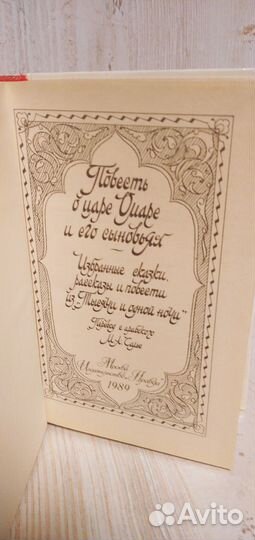 Повесть
о царе Омаре
и его сыновьях
Избранные сказки,
рассказы и повести
из „Тысячи и одной ночи“
Перевод с арабского
М.А. Салье
Москва
Издательство „Правда“
1989
Avito